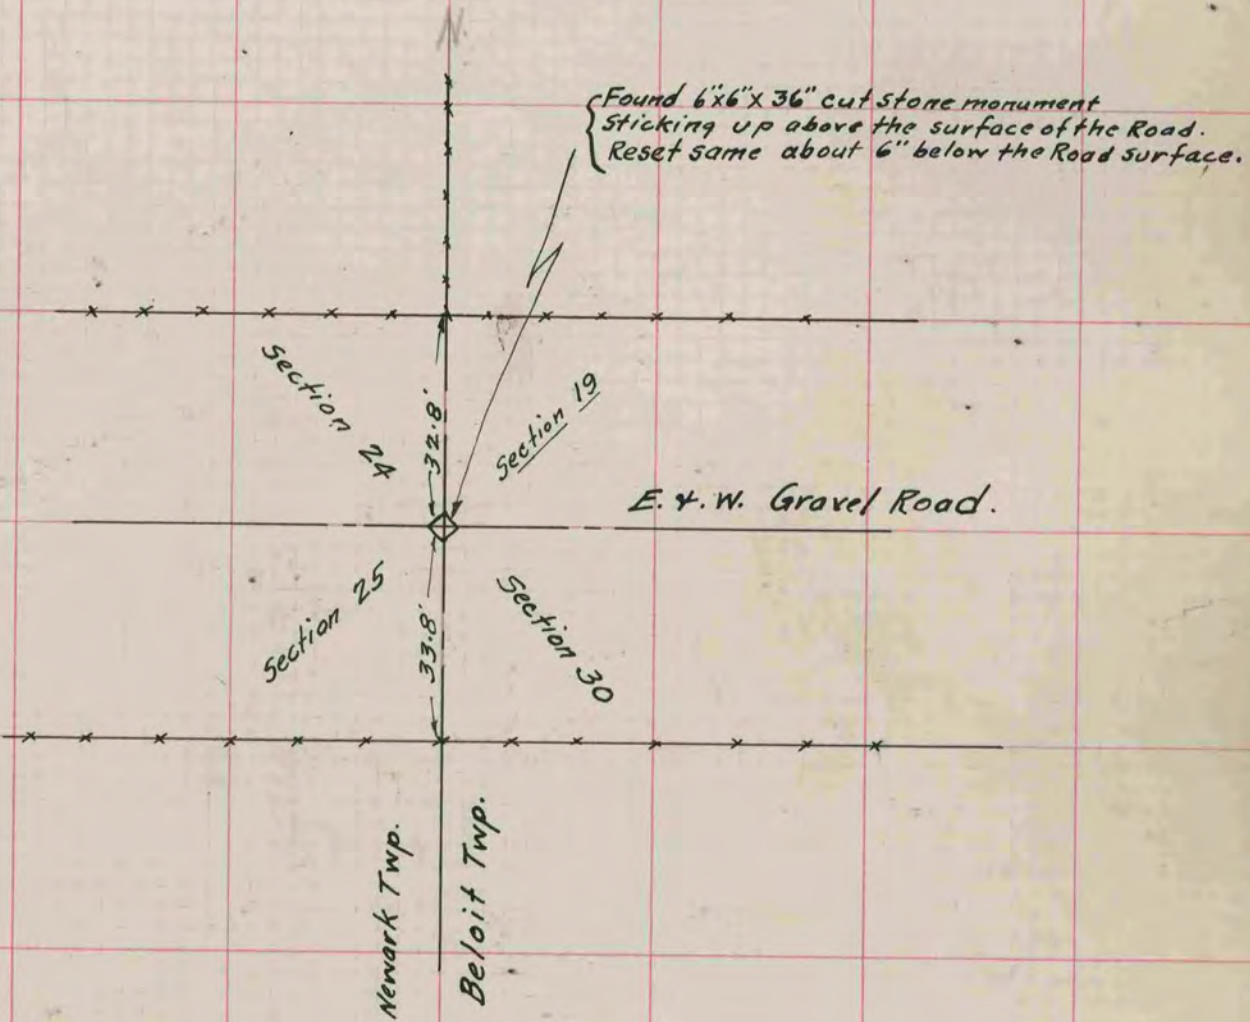 N.
Found 6"x6"x 36" cut stone monument
Sticking up above the surface of the Road.
Reset same about 6" below the Road surface.
Section 24
32.8'
Section 19
E. & W. Gravel Road.
Section 25
33.8'
Section 30
Newark Twp.
Beloit Twp.